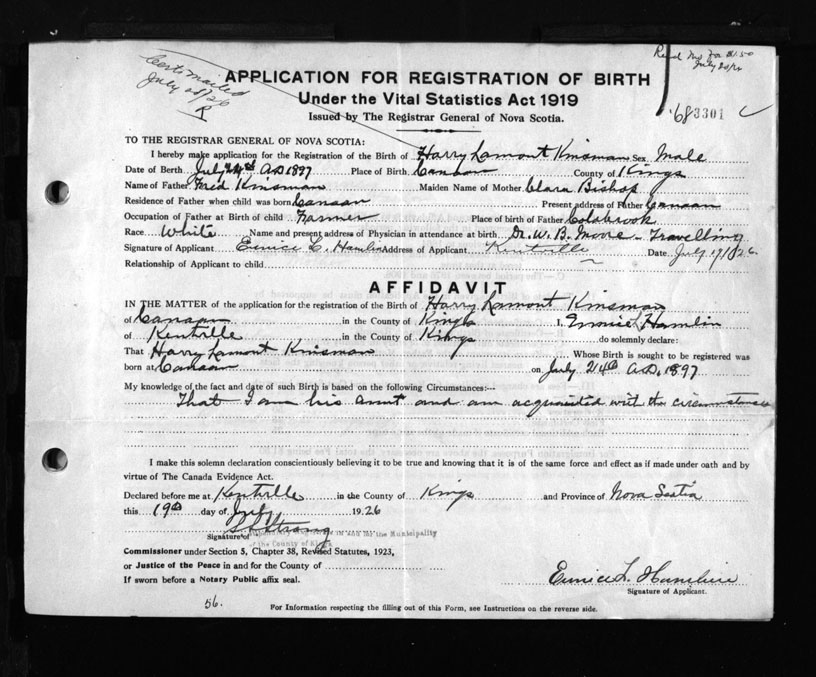 Cert mailed
July 28/26
R
Recd M.O. For $1.50
July 20/26
APPLICATION FOR REGISTRATION OF BIRTH
Under the Vital Statistics Act 1919
Issued by The Registrar General of Nova Scotia.
683301
TO THE REGISTRAR GENERAL OF NOVA SCOTIA:
I hereby make application for the Registration of the Birth of Harry Lamont Kinsman Sex Male
Date of Birth July 24th A.D 1897 Place of Birth Canaan County of Kings
Name of Father Fred Kinsman Maiden Name of Mother Clara Bishop
Residence of Father when child was born Canaan Present address of Father Canaan
Occupation of Father at Birth of child Farmer Place of birth of Father Coldbrook
Race White Name and present address of Physician in attendance at birth Dr. W. B. Moore - Travelling
Signature of Applicant Eunice L. Hamlin Address of Applicant Kentville Date July 19/1926
Relationship of Applicant to child
AFFIDAVIT
IN THE MATTER of the application for the registration of the Birth of Harry Lamont Kinsman
of Canaan in the County of Kings I, Eunice L Hamlin
of Kentville in the County of Kings do solemnly declare:
That Harry Lamont Kinsman Whose Birth is sought to be registered was
born at Canaan on July 24th A.D. 1897
My knowledge of the fact and date of such Birth is based on the following Circumstances:—
That I am his aunt and am acquainted with the circumstances
I make this solemn declaration conscientiously believing it to be true and knowing that it is of the same force and effect as if made under oath and by
virtue of The Canada Evidence Act.
Declared before me at Kentville in the County of Kings and Province of Nova Scotia
this 19th day of July 1926
Signature of
the Municipality
of the County of Kings
Commissioner under Section 5, Chapter 38, Revised Statutes, 1923,
or Justice of the Peace in and for the County of
If sworn before a Notary Public affix seal.
Eunice L. Hamlin
Signature of Applicant.
56.
For Information respecting the filling out of this Form, see Instructions on the reverse side.